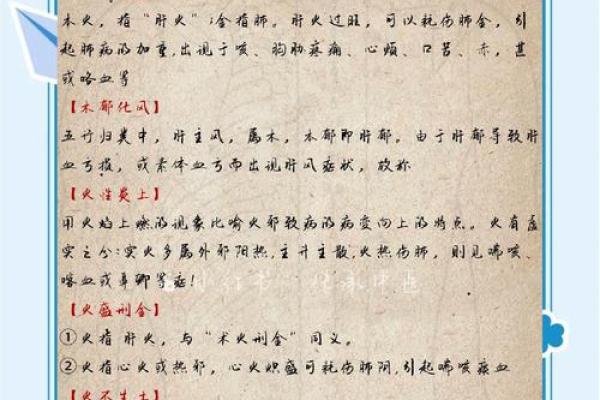 木火，指“肝火”；金指肺。肝火过旺，可以耗伤肺金，引
起肺病的加重，出现于咳、胸胁疼痛、心烦、口苦、赤，甚
或咯血等
【木郁化风】
五行归类中，肝主风，属木，木郁即肝郁。由于肝郁导致肝
血亏损，或素体血亏而出现肝风症状，故称
【火性炎上】
用火焰上燃的现象比喻火邪致病的病变向上的特点。火有虚
实之分：实火多属外邪阳热，主升主散，火热伤肺，则见喘咳、
喀血或鼻衄等症！
【火盛刑金】
①火指肝火，与“木火刑金”同义。
②火指心火或热邪，心火炽盛可耗伤肺阴，引起喘咳痰血
【火不生土】